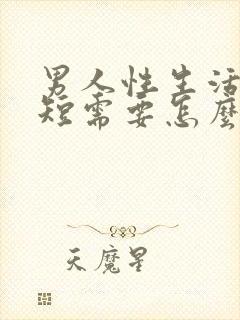 男人性生活
短需要怎麼
天魔星